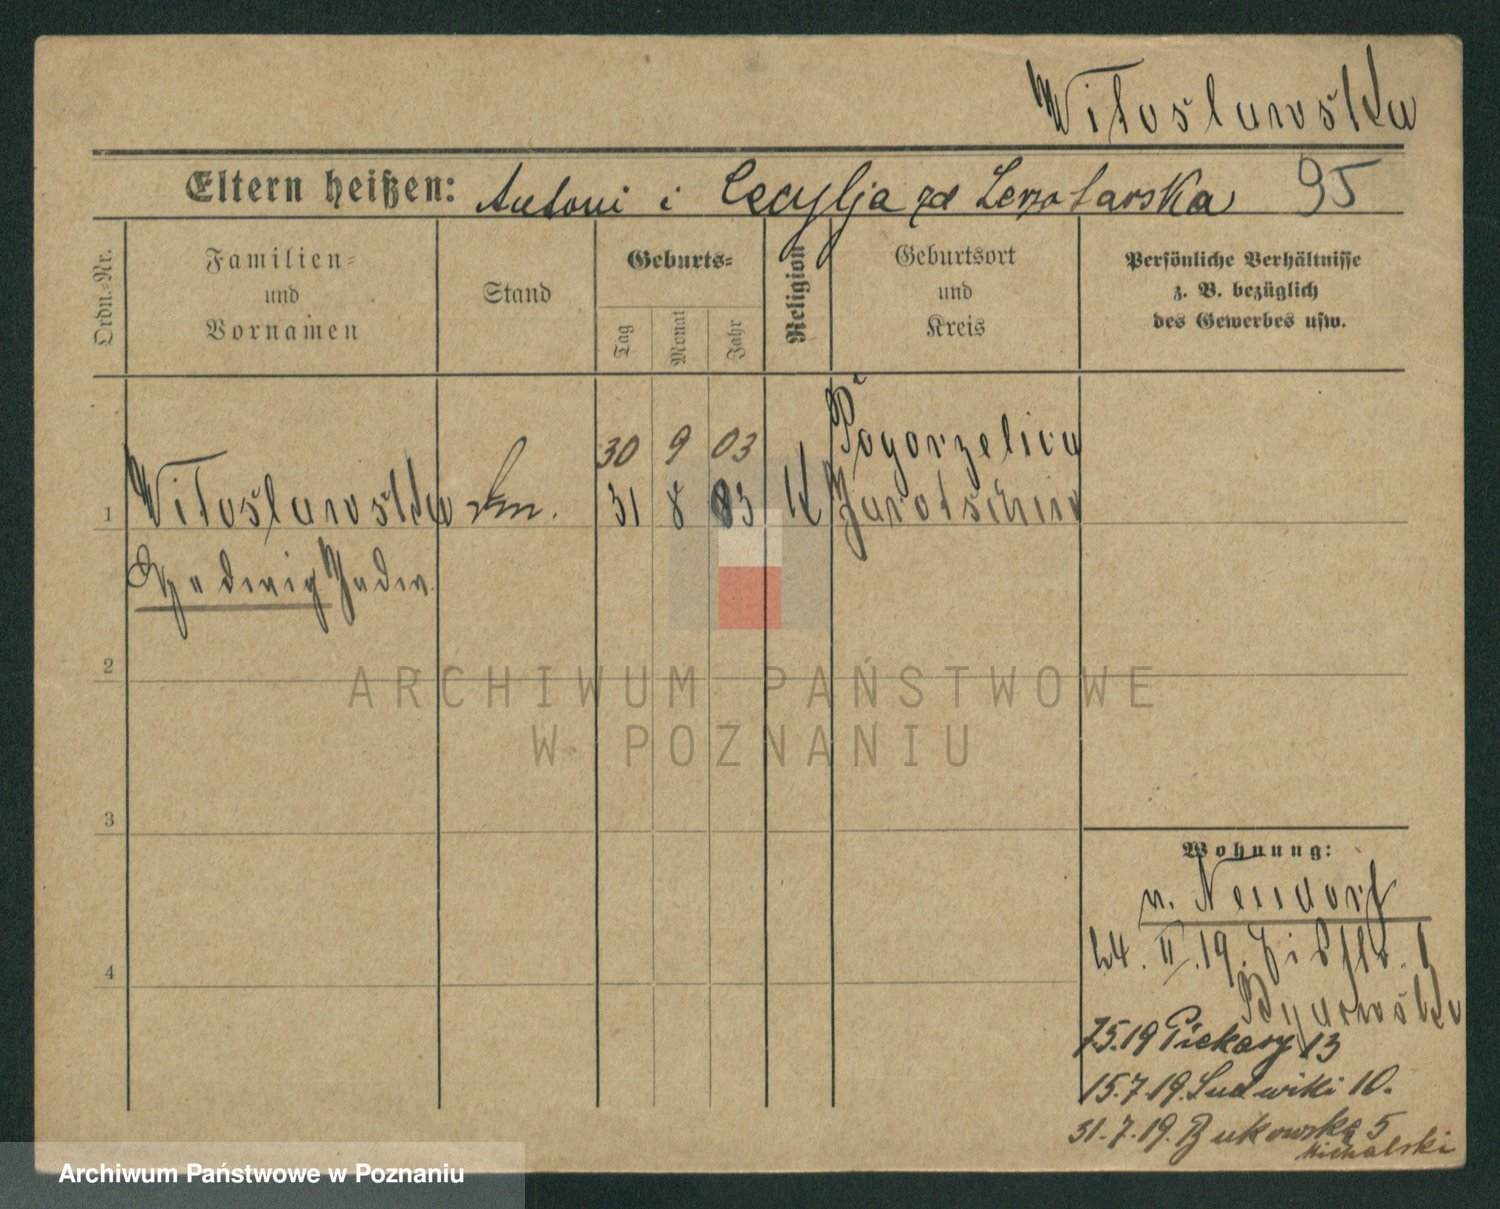 Witosławska
Eltern heißen: Antoni i Cecylja zd 95
Ordn.-Nr.
Familien-
und
Vornamen
Stand
Geburts-
Tag
Monat
Jahr
Religion
Geburtsort
und
Kreis
Persönliche Verhältnisse
z. B. bezüglich
des Gewerbes usw.
30 9 03
Pogorzelica
1 Witosławska 31 8 83 K Jarotschin
Hedwig Jadw.
2
ARCHIWUM PAŃSTWOWE
W POZNANIU
3
Wohnung:
v. Neudorf
4
24. II. 19.
7.5.19 Piekary 13
15.7.19. Ludwiki 10.
31.7.19. Bukowska 5
Michalski
Archiwum Państwowe w Poznaniu